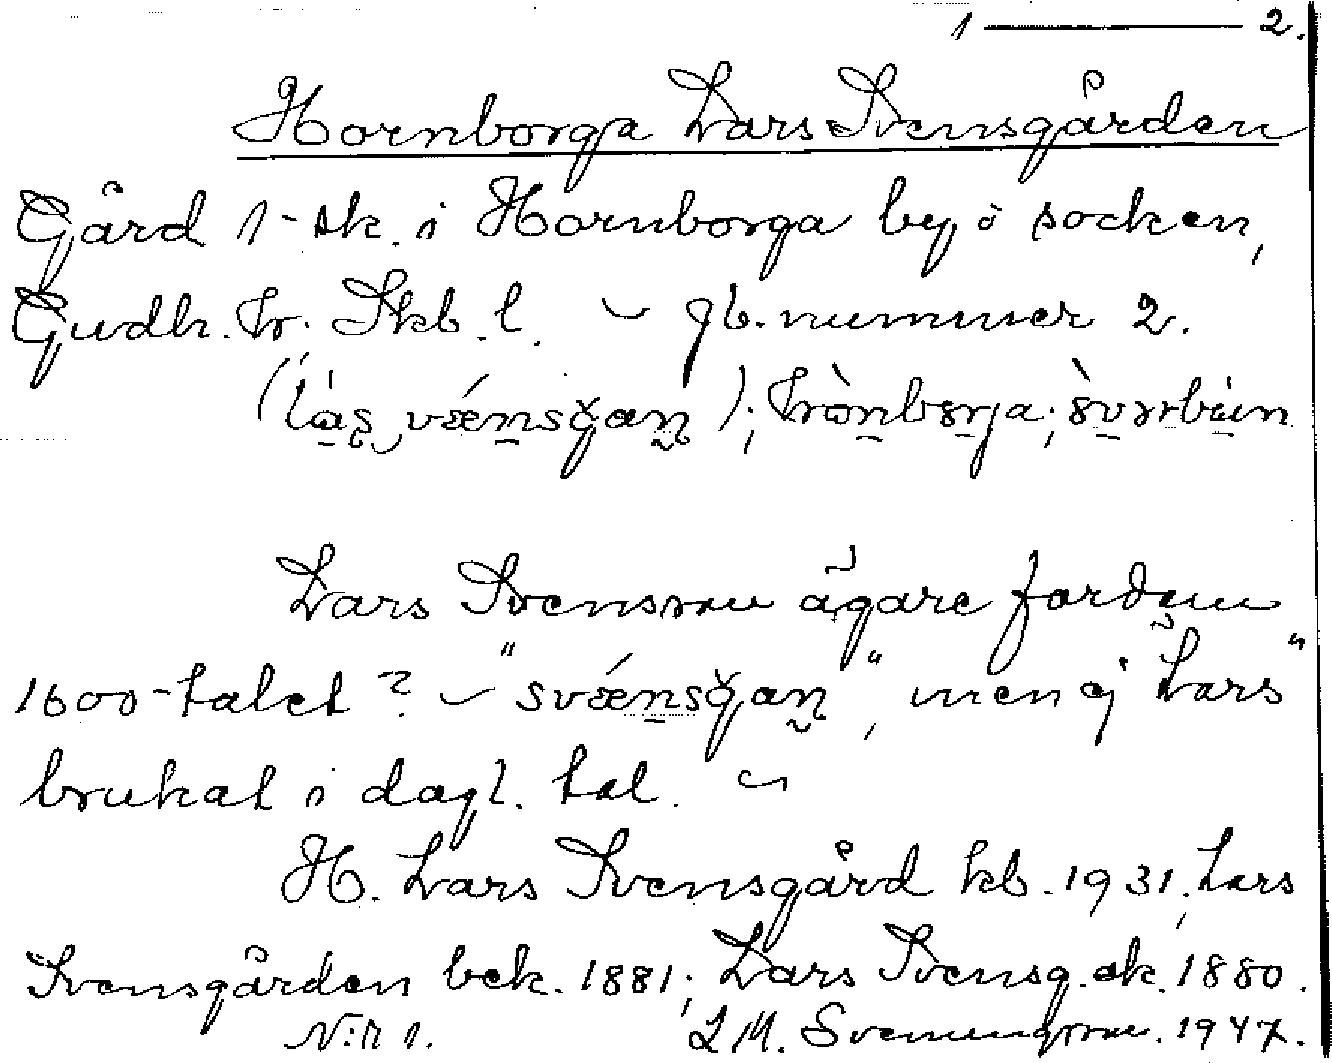 1 — 2.
Hornborga Lars Svensgården
Gård 1-sk. i Hornborga by o socken,
Gudh. hr. Skb. l. — jb. nummer 2.
Lars Svenson ägare fordom
1600-talet? — "svǽnsgan", men ej "Lars"
brukat i dagl. tal. ~
H. Lars Svensgård kb. 1931; Lars
Svensgården bek. 1881; Lars Svensg. ek. 1880.
N:r 1. L M. Svenungsson. 1947.